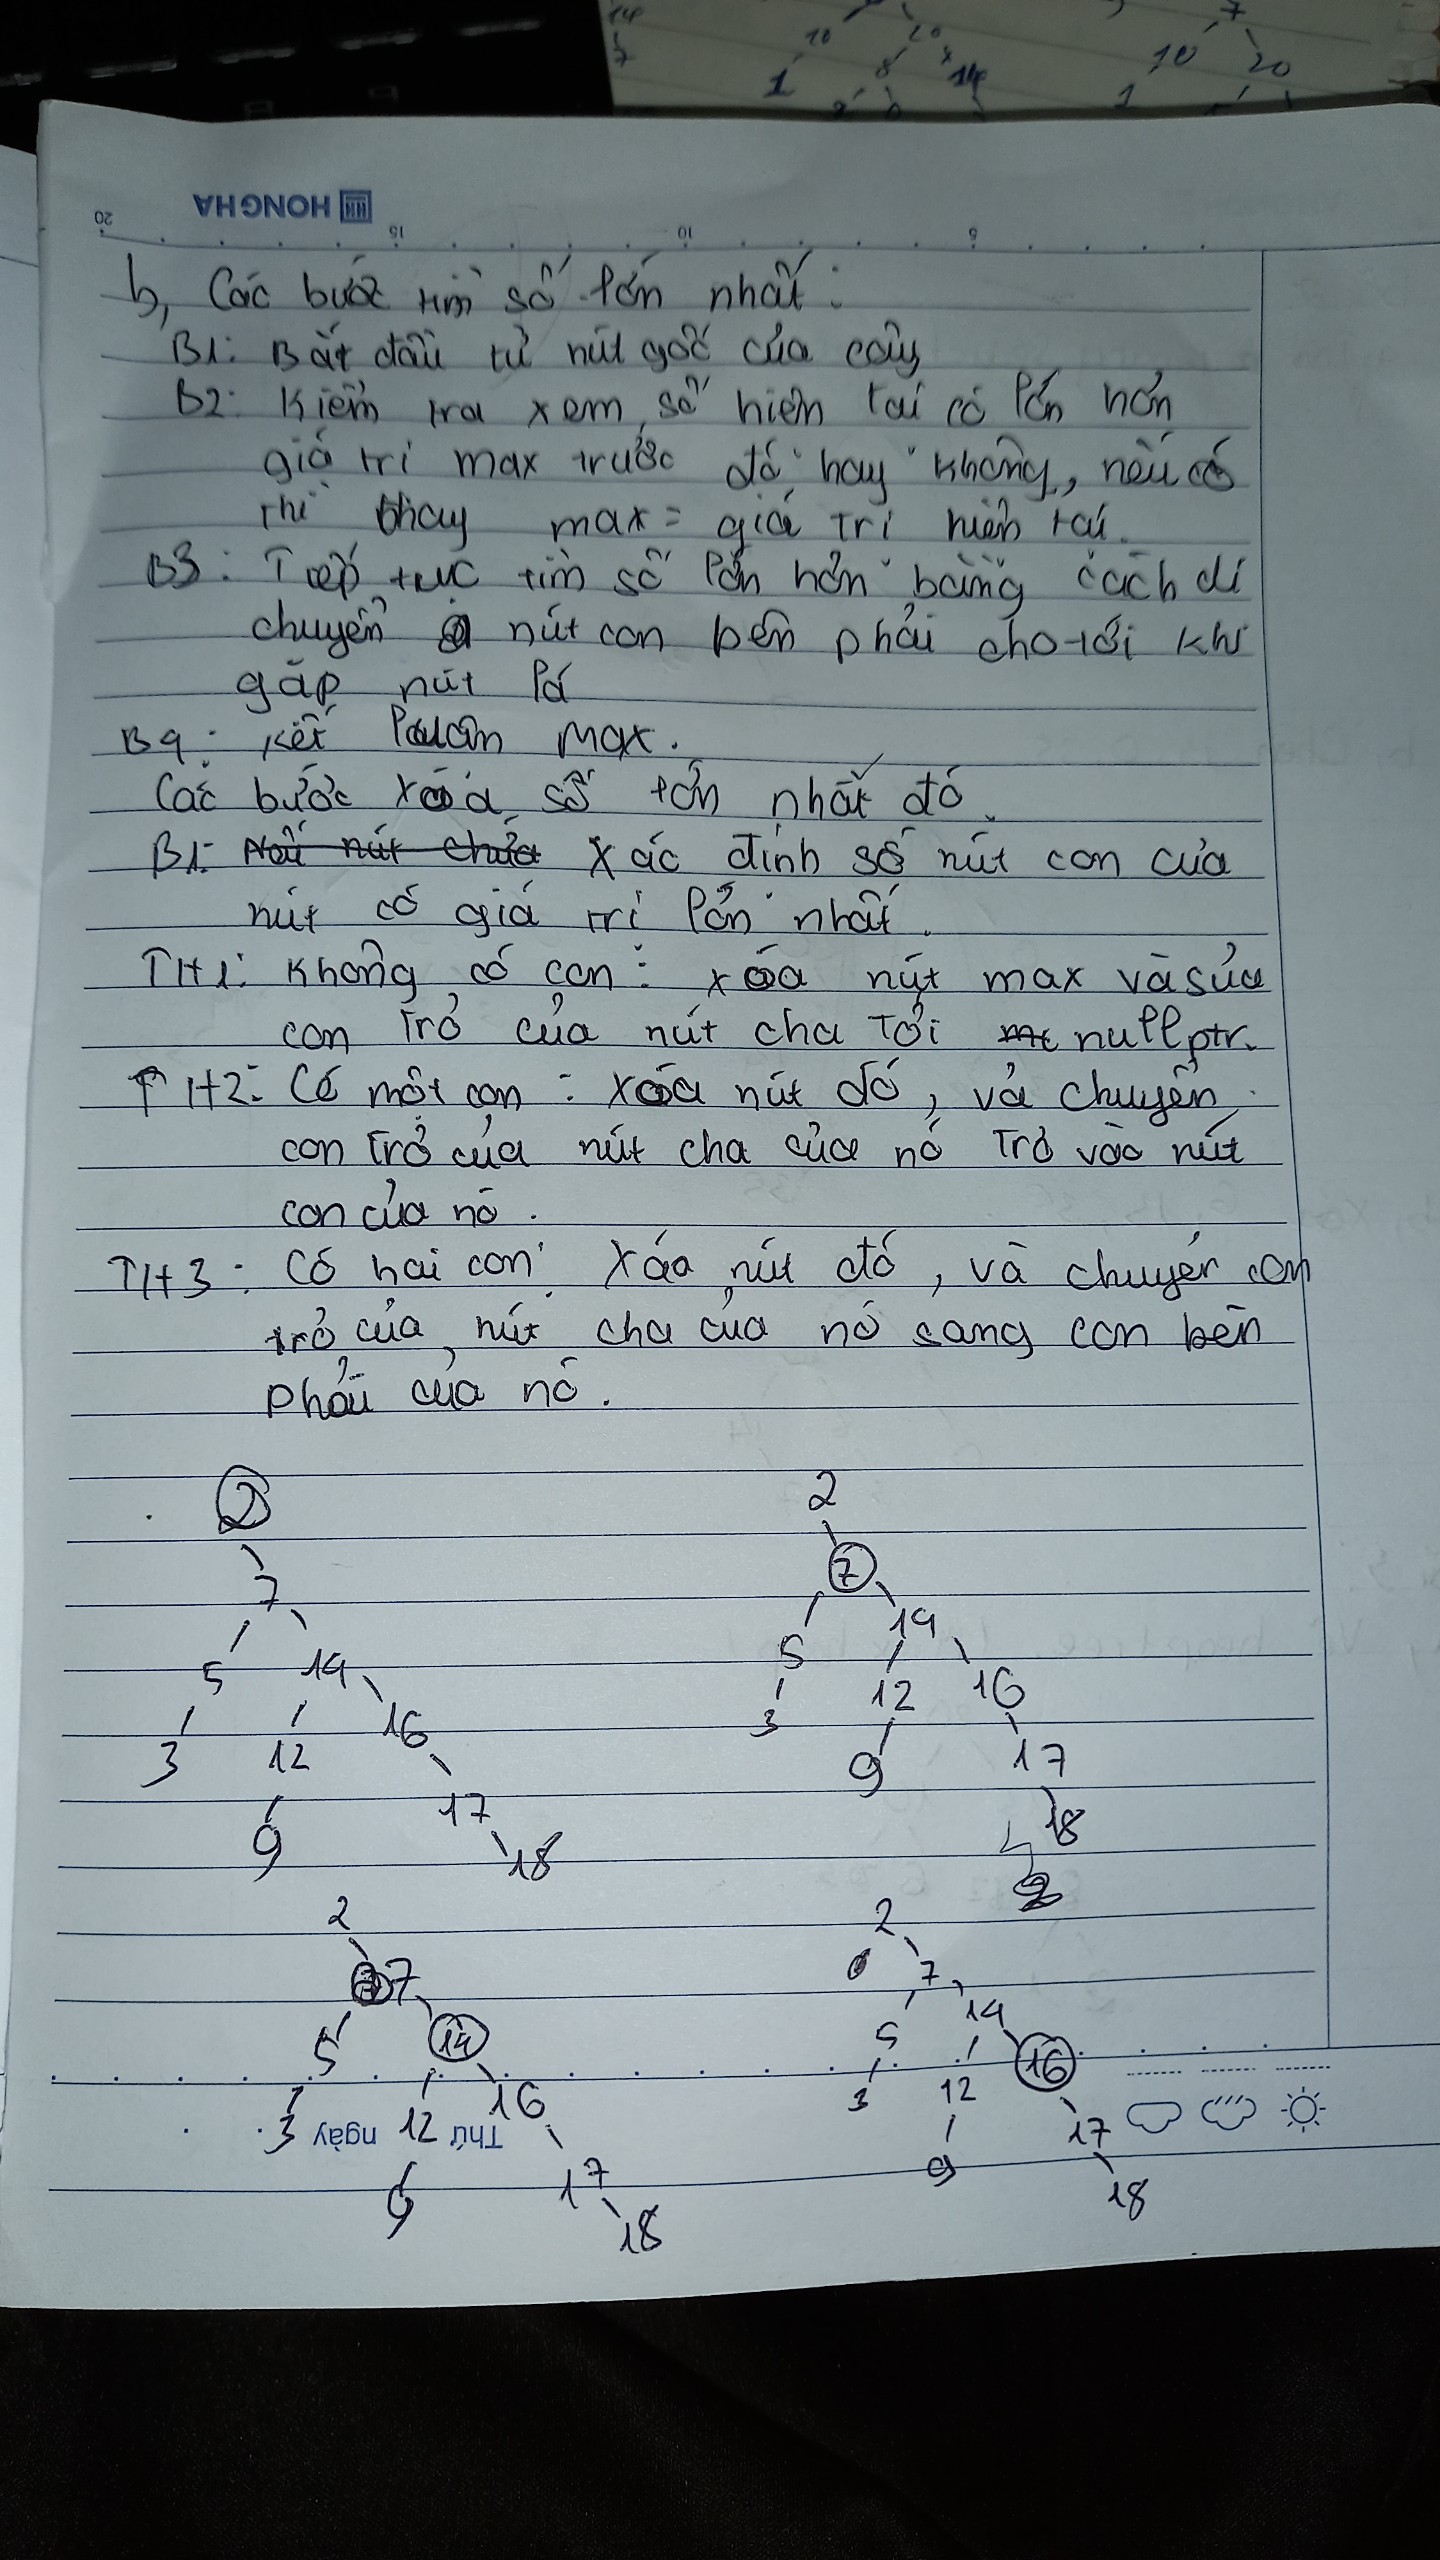 14
7
10
20
1
8
14
7
10
20
1
HONGHA
20
15
10
5
b, Các bước tìm số lớn nhất:
B1: Bắt đầu từ nút gốc của cây
B2: Kiểm tra xem số hiện tại có lớn hơn
giá trị max trước đó hay không, nếu có
thì thay max = giá trị hiện tại.
B3: Tiếp tục tìm số lớn hơn bằng cách di
chuyển nút con bên phải cho tới khi
gặp nút lá
B4: Kết luận max.
Các bước xóa số lớn nhất đó.
B1: Nếu nút chứa Xác định số nút con của
nút có giá trị lớn nhất.
TH1: Không có con: xóa nút max và sửa
con trỏ của nút cha tới nullptr.
TH2: Có một con: xóa nút đó, và chuyển
con trỏ của nút cha của nó trỏ vào nút
con của nó.
TH3: Có hai con: Xóa nút đó, và chuyển con
trỏ của nút cha của nó sang con bên
phải của nó.
2
7
5 14
3 12 16
9 17
18
2
7
5 14
3 12 16
9 17
18
2
7
5 14
3 12 16
9 17
18
2
7
5 14
3 12 16
9 17
18
Thứ
ngày